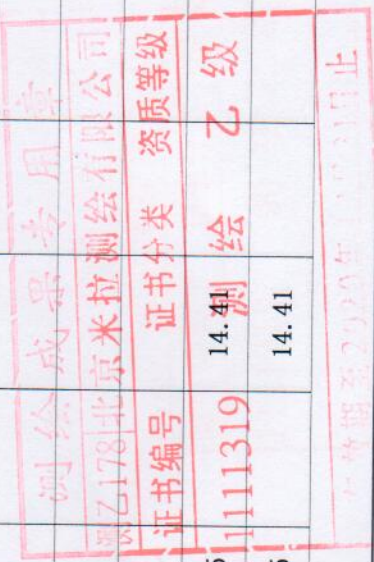 测绘成果专用章
测乙178北京米拉测绘有限公司
证书编号 证书分类 资质等级
11111319 测绘 乙级
14.41
14.41